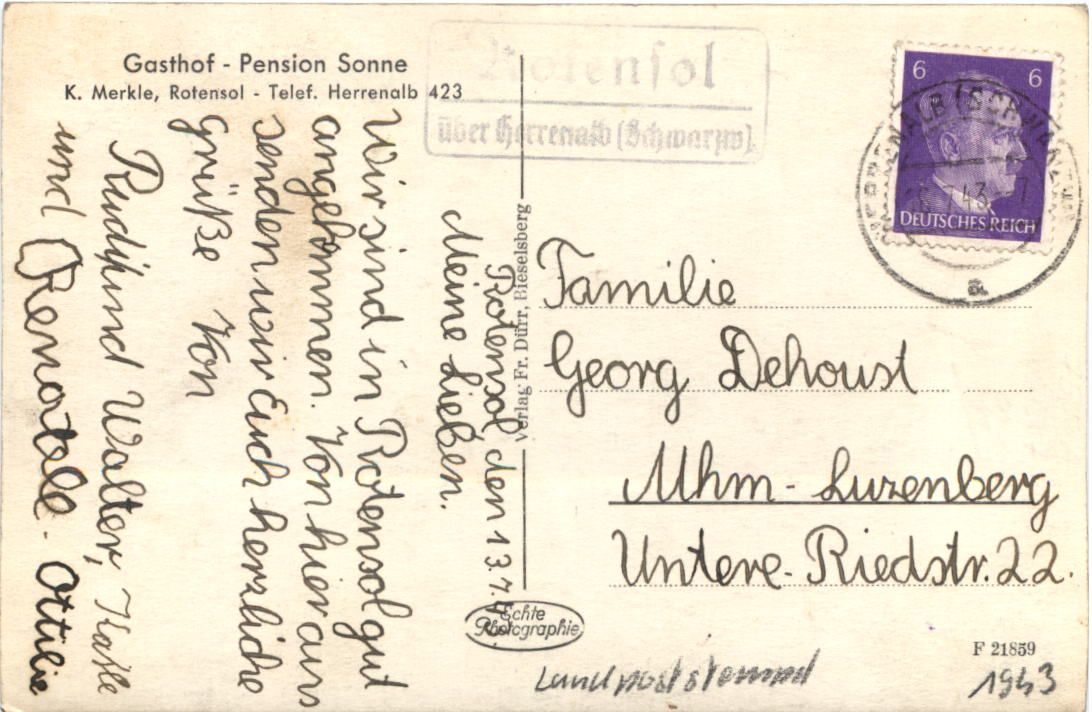 Gasthof - Pension Sonne
K. Merkle, Rotensol - Telef. Herrenalb 423
Rotensol
über Herrenalb (Schwarzw).
6 6
DEUTSCHES REICH
HERRENALB (SCHWARZW
7.43
a
Rotensol, den 13.7.43.
Meine Lieben.
Wir sind in Rotensol gut
angekommen. Von hier aus
senden wir Euch herzliche
Grüße Von
Rudi und Walter,
und Renate - Otilie
Verlag Fr. Dürr, Bieselsberg
Familie
Georg Dehoust
Mhm - Luzenberg
Untere - Riedstr. 22.
Echte
Photographie
F 21859
Landpoststempel
1943